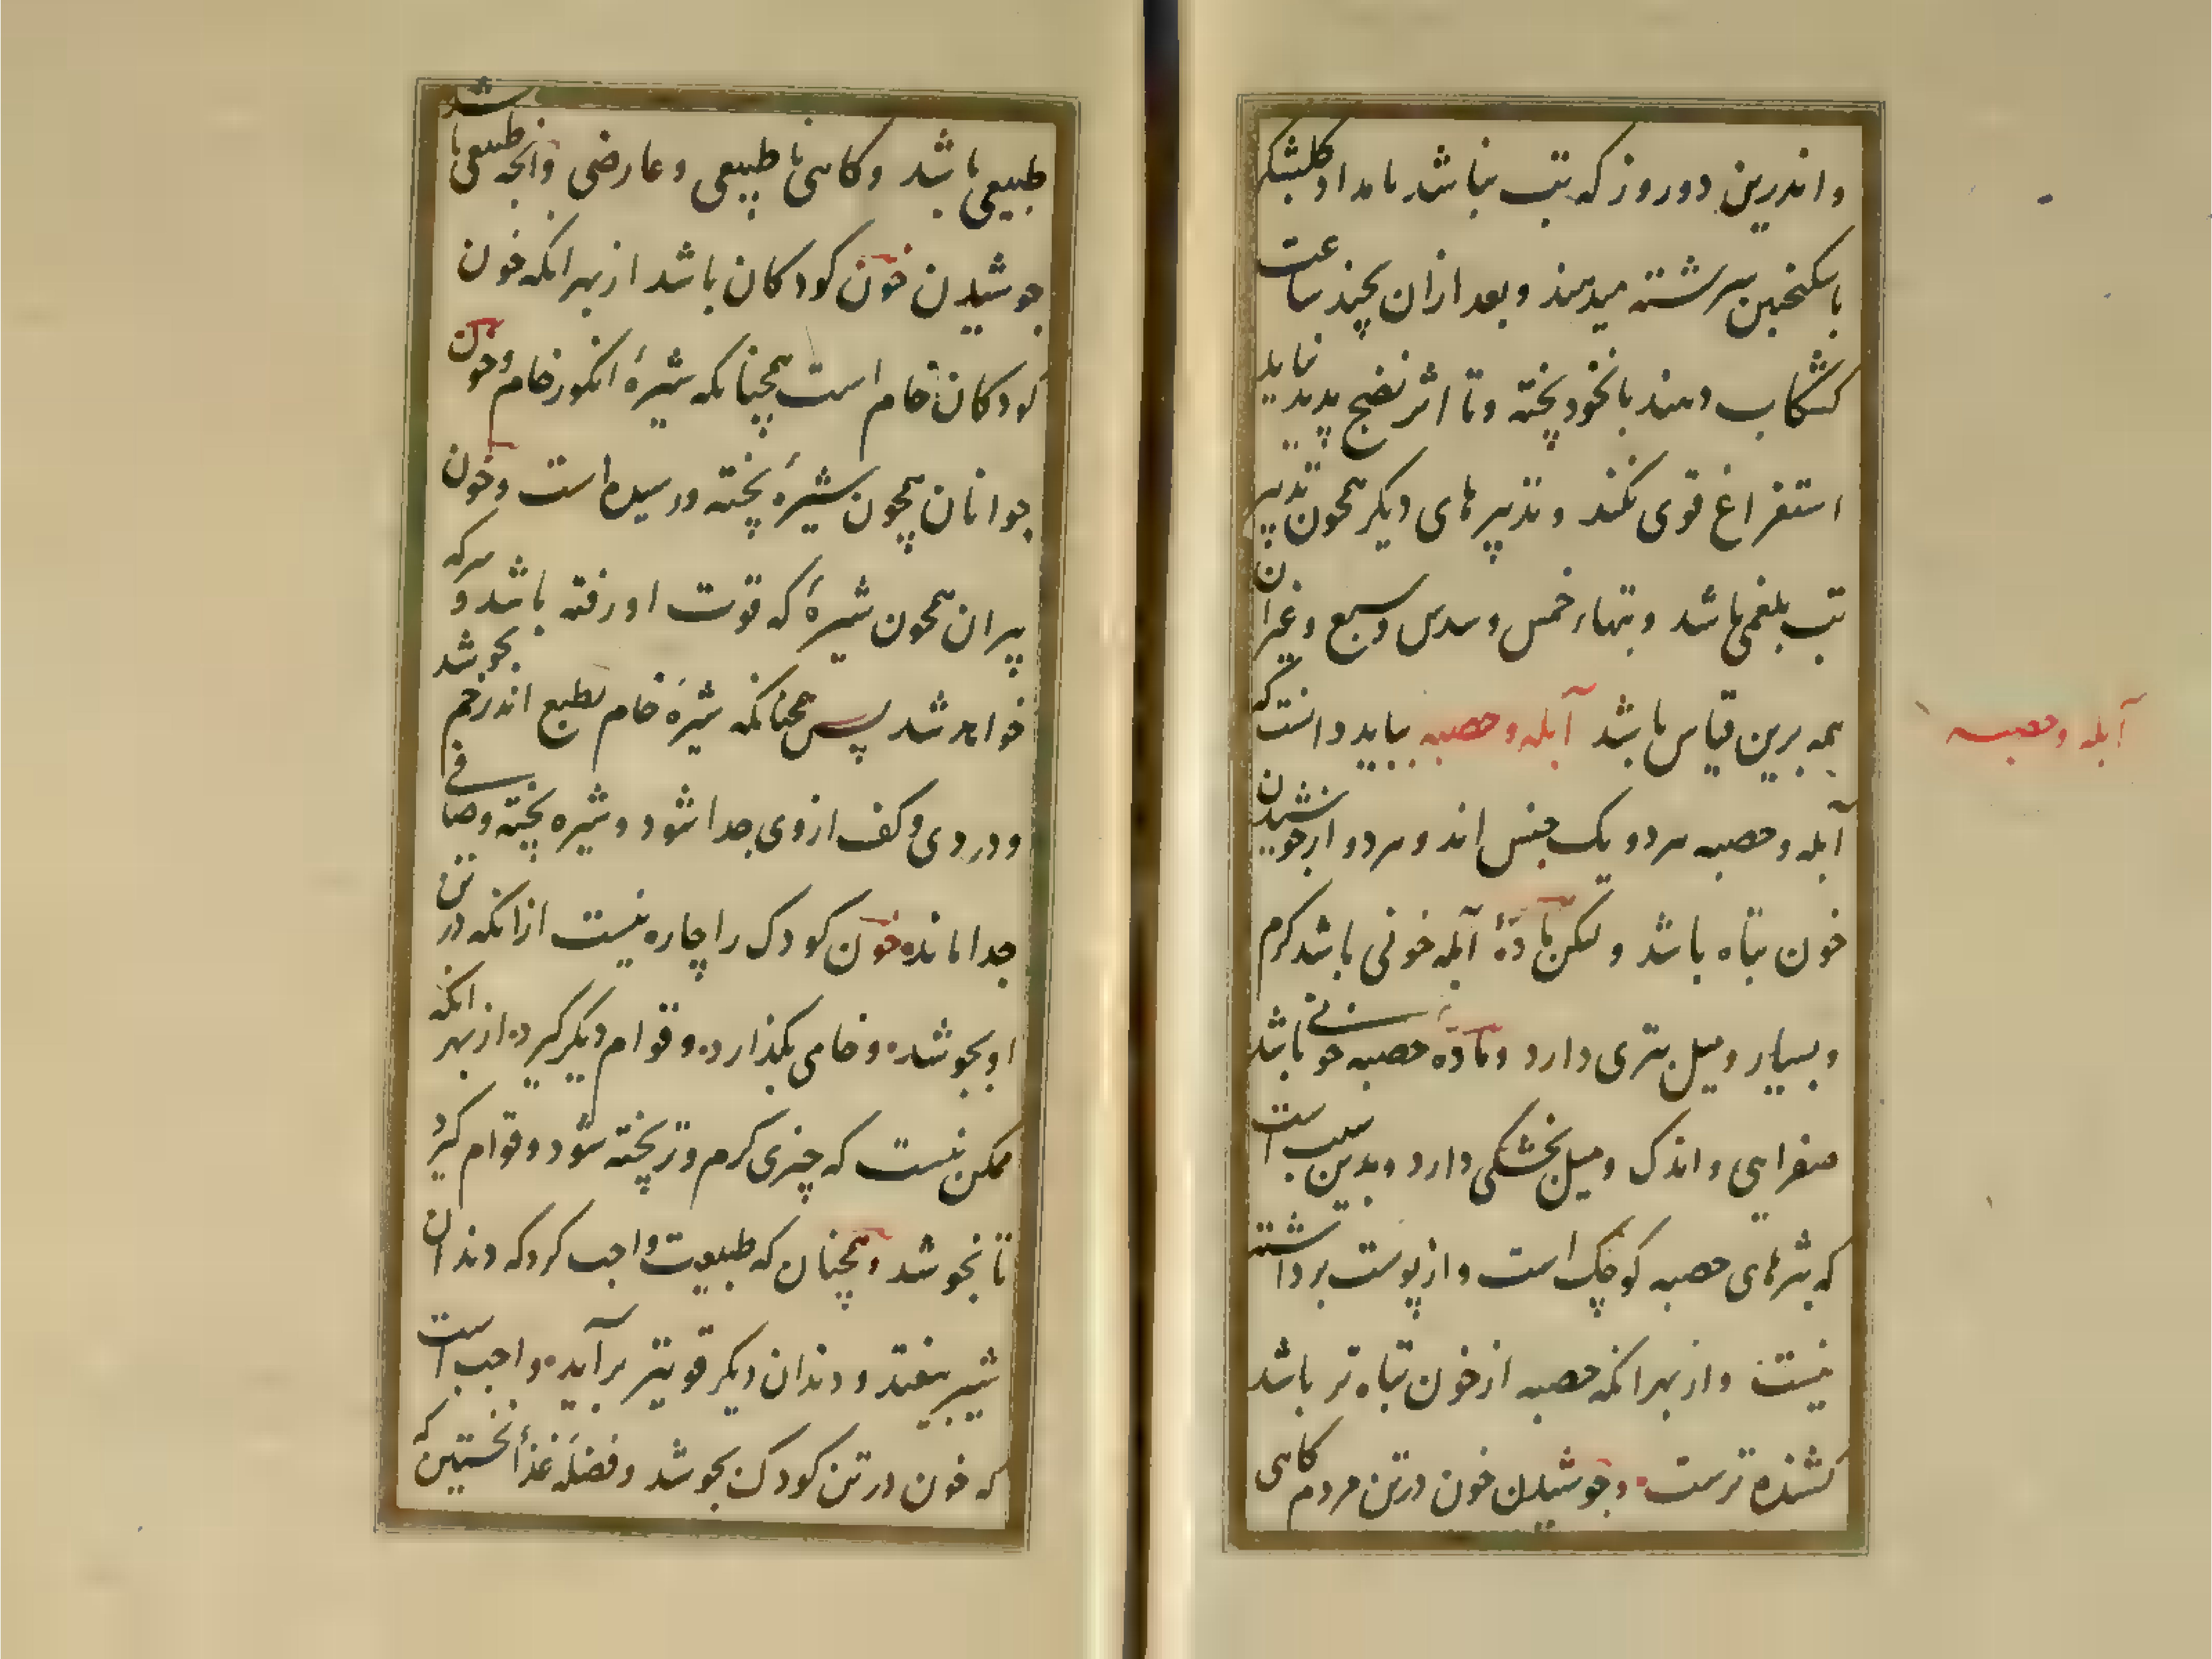 واندرین دو روز که تب نباشد بامداد کلشکر
باسکنجبین سرشته میدهند و بعد ازان بچند ساعت
کشکاب دهند با نخود پخته و تا اثر نضج پدید نیاید
استفراغ قوی نکنند و تدبیرهای دیگر همچون تدبیر
تب بلغمی باشد و تبهاء خمس و سدس و سبع و غیر ان
همه برین قیاس باشد آبله و حصبه بباید دانست که
آبله و حصبه
آبله و حصبه هر دو یک جنس اند و هر دو از جوشیدن
خون تباه باشد ولیکن مادۀ آبله خونی باشد کرم
و بسیار و میل بتری دارد و مادۀ حصبه خونی باشد
صفرایی و اندک و میل بخشکی دارد و بدین سبب است
که بثرهای حصبه کوچک است و از پوست برداشته
نیست و از بهر انکه حصبه از خون تباه تر باشد
کشنده ترست و جوشیدن خون در تن مردم کاهی
طبیعی باشد و کاهی نا طبیعی و عارضی و آنچه طبیعی باشد
جوشیدن خون کودکان باشد از بهر انکه خون
کودکان خام است همچنانکه شیرۀ انکور خام و خون
جوانان همچون شیرۀ پخته و رسیده است و خون
پیران همچون شیرۀ که قوت او رفته باشد و سرکه
خواهد شد پس همچنانکه شیرۀ خام بطبع اندر خم بجوشد
و دردی و کف از وی جدا شود و شیره پخته و صافی
جدا مانده خون کودک را چاره نیست از انکه در تن
او بجوشد و خامی بکذارد و قوام دیکر کیرد از بهر انکه
ممکن نیست که چیزی کرم و تر پخته شود و قوام کیرد
تا نجوشد و همچنان که طبیعت واجب کرد که دندان
شیر بیفتد و دندان دیکر قویتر برآید واجب است
که خون در تن کودک بجوشد و فضلۀ غذاء نخستین که